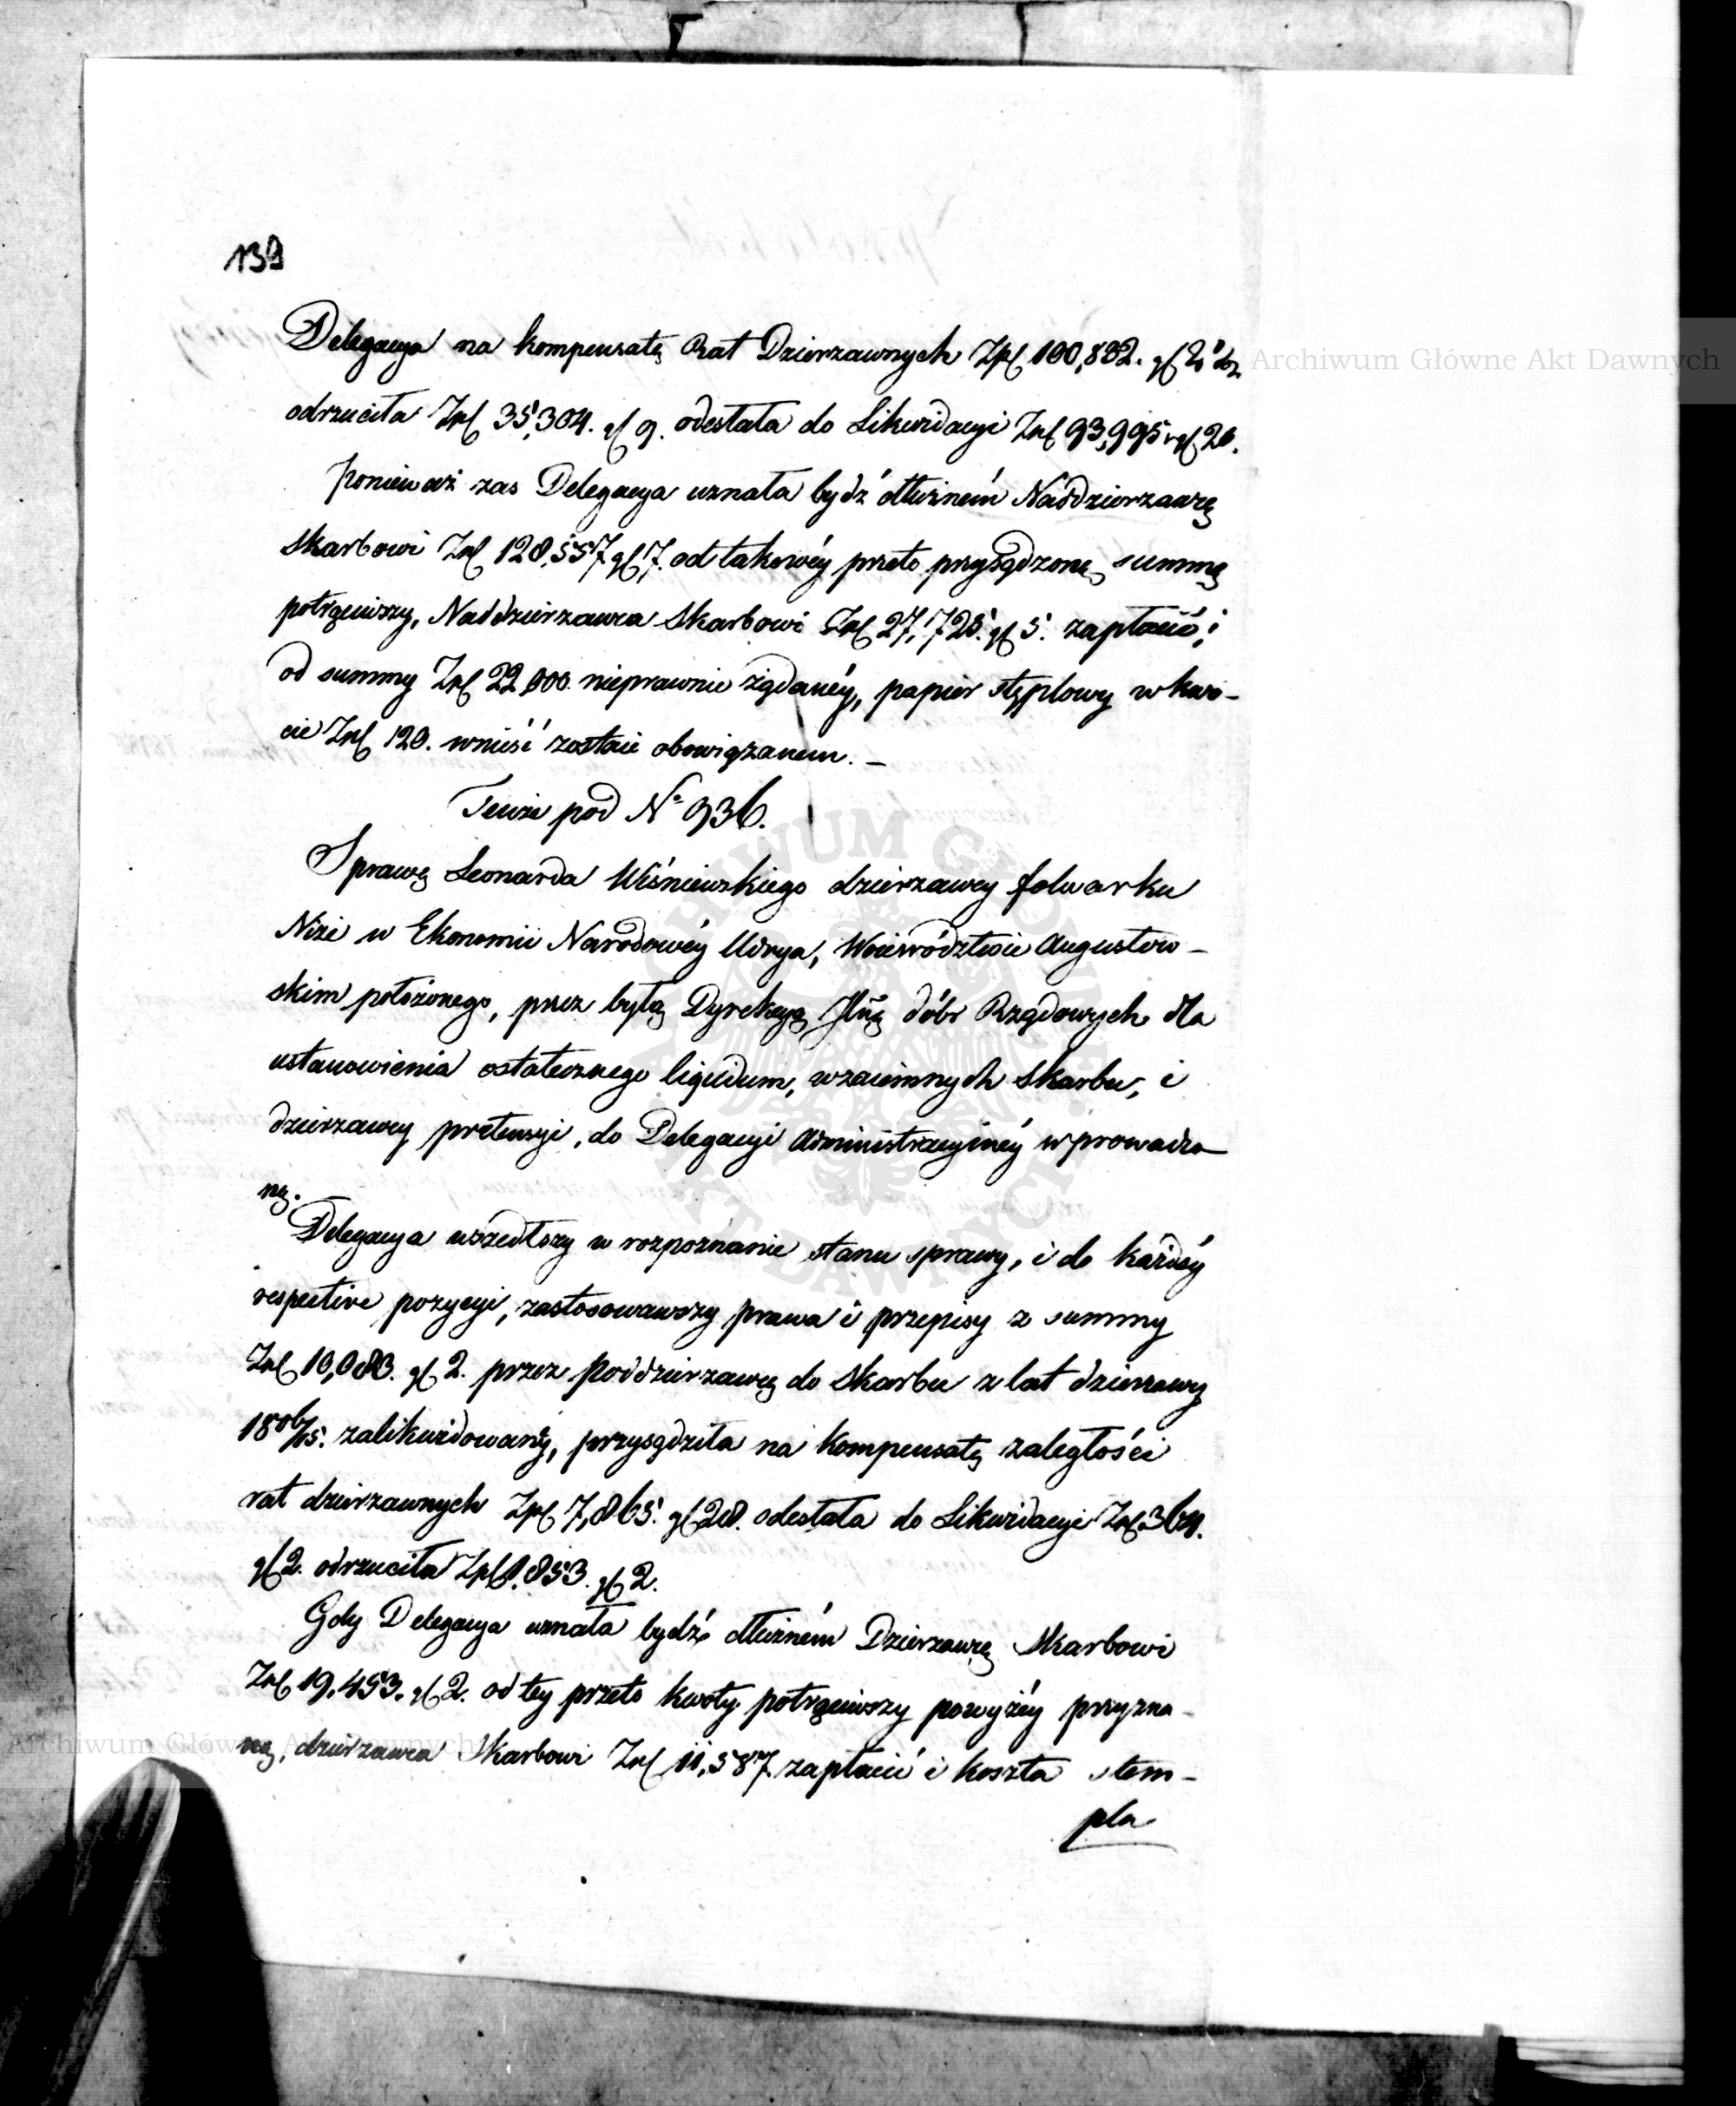 139
Delegacya na kompensatę Rat Dzierzawnych Zpł 100,832. gł 2
odrzuciła Zpł 35,304. gł 9. odesłała do Likwidacyi Zpł 93,995 gł 26.
Ponieważ zas Delegacya uznała bydź dłużném Naddzierzawcę
Skarbowi Zpł 128,557 gł 7. od takowéy przeto przysądzoną summę
potrąciwszy, Naddzierzawca Skarbowi Zpł 27,725. gł 5. zapłacić, i
od summy Zpł 22,000. nieprawnie żądanéy, papier stęplowy w kwo-
cie Zpł 120. wnieść zostaie obowiązanem. —
Tenże pod No 936.
Sprawę Leonarda Wiśniewskiego dzierzawcy folwarku
Niże w Ekonomii Narodowéy Udrya, Woiewództwie Augustow-
skim położonego, przez byłą Dyrekcyą Jlną dóbr Rządowych dla
ustanowienia ostatecznego liquidum, wzaiemnych Skarbu, i
dzierzawcy pretensyi, do Delegacyi Administracyinéy wprowadzo
ną.
Delegacya wszedłszy w rozpoznanie stanu sprawy, i do każdéy
respective pozycyi, zastosowawszy prawa i przepisy z summy
Zpł 10,083. gł 2. przez Poddzierzawcę do Skarbu z lat dzierzawy
1806/15. zalikwidowanéy, przysądziła na kompensatę zaległości
rat dzierzawnych Zpł 7,865. gł 28. odesłała do Likwidacyi Zpł 364.
gł 2. odrzuciła Zpł 1,853. gł 2.
Gdy Delegacya uznała bydź dłużném Dzierzawcę Skarbowi
Zpł 19,453. gł 2. od tey przeto kwoty potrąciwszy powyżéy przyzna-
ną, dzierzawca Skarbowi Zpł 11,587. zapłacić i koszta stem-
pla
Archiwum Główne Akt Dawnych
Archiwum Główne Akt Dawnych
ARCHIWUM GŁÓWNE AKT DAWNYCH